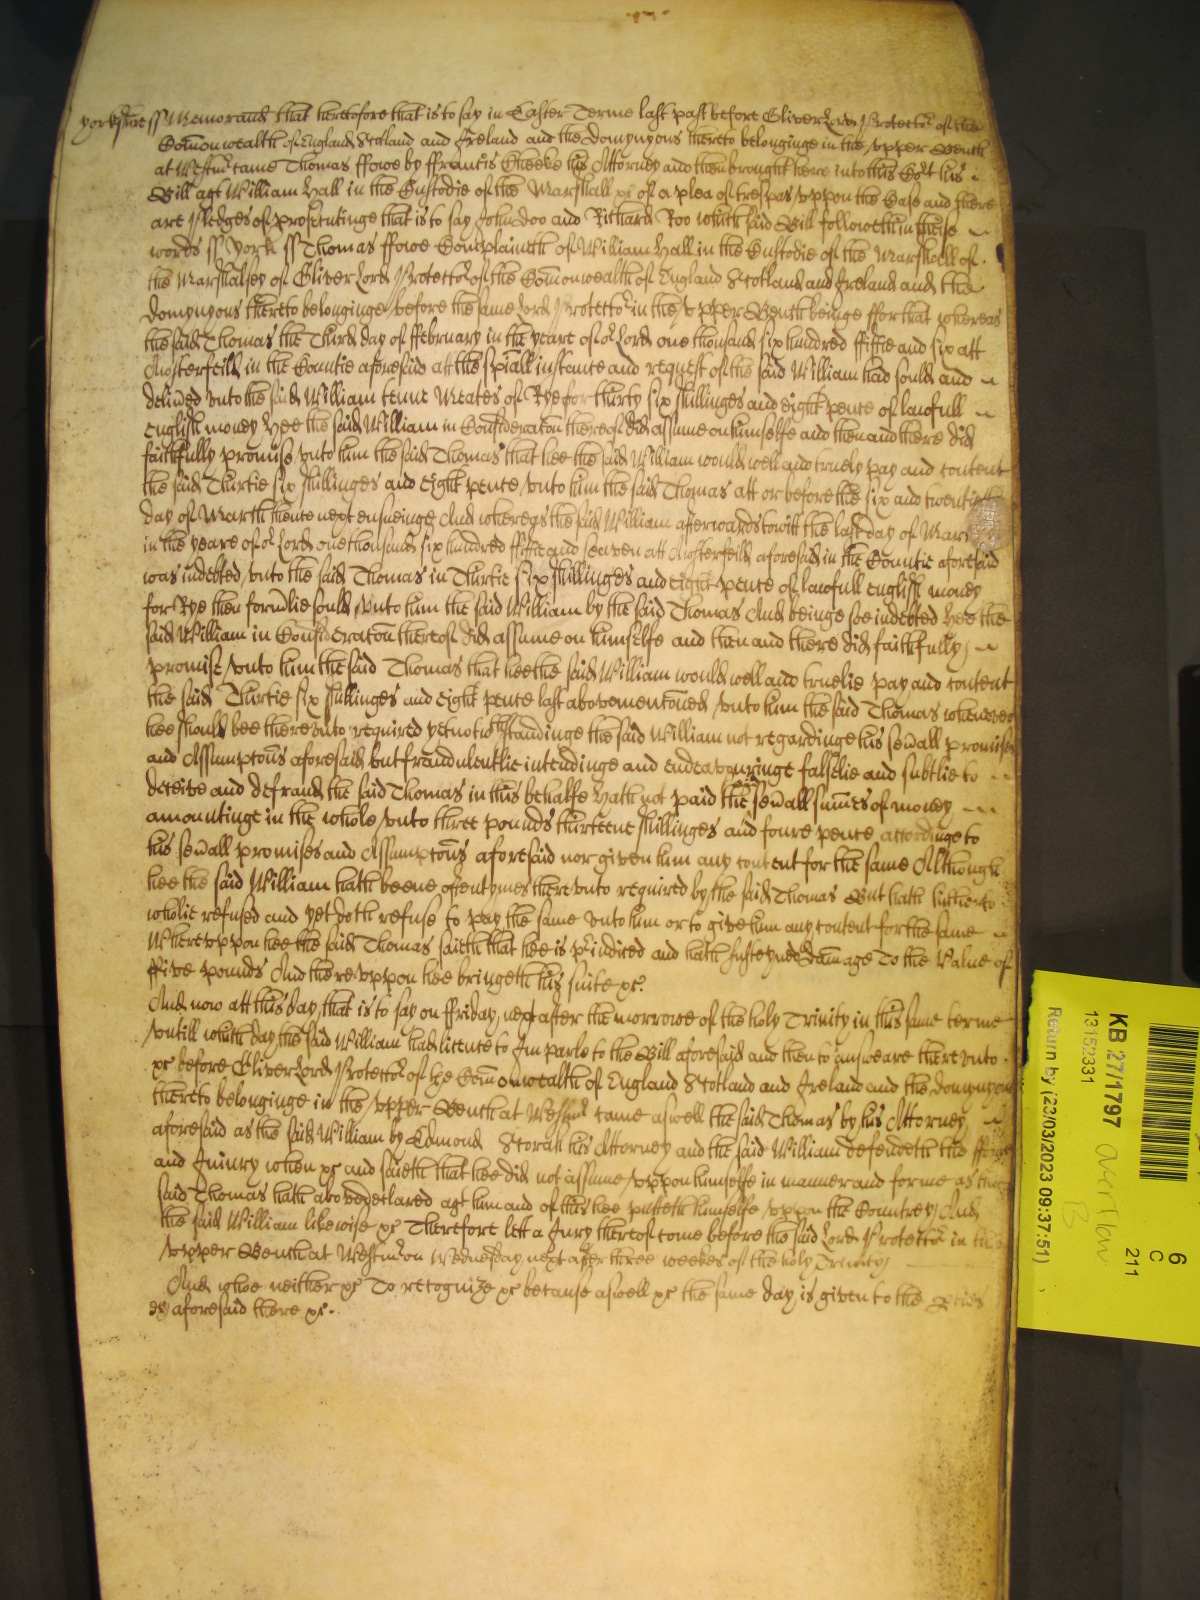 yorkshire ss Memorand that heretofore that is to say in Easter Terme last past before Oliver Lord Protector of the
Com̄onwealth of England Scotland and Ireland and the Domynyons thereto belonginge in the vpper Bench
at Westmr came Thomas ffowe by ffrancis Cheeke his Attorney and then brought here into this Cort his
Bill agt William Hall in the Custodie of the Marshall &c of a plea of trespas vppon the Case and there
are pledges of prosecutinge that is to say John Doo and Richard Roo which said Bill followeth in theise
words ss York ss Thomas ffowe Complaineth of William Hall in the Custodie of the Marshall of
the Marshalsey of Oliver Lord Protector of the Com̄onwealth of England Scotland and Ireland and the
Domynyons thereto belonginge before the same Lord Protector in the vpper Bench beinge ffor that whereas
the said Thomas the Third day of ffebruary in the yeare of or Lord one thousand six hundred ffiftie and six att
in the Countie aforesaid att the sp̄iall instance and request of the said William had sould and
deliv̄ed vnto the said William tenne Meates of Rye for thirty six shillinges and eight pence of lawfull
English money Hee the said William in Considerac̄on thereof did assume on himselfe and then and there did
faithfully promise vnto him the said Thomas that hee the said William would well and truely pay and content
the said Thirtie six shillinges and eight pence vnto him the said Thomas att or before the six and twentieth
day of March thence next ensueinge And whereas the said William afterwards towitt the last day of
in the yeare of or Lord one thousand six hundred ffiftie and seaven att aforesaid in the Countie aforesaid
was indebted vnto the said Thomas in Thirtie six shillinges and eight pence of lawfull english money
for Rye then form̄lie sould vnto him the said William by the said Thomas And beinge soe indebted Hee the
said William in Considerac̄on thereof did assume on himselfe and then and there did faithfully
promise vnto him the said Thomas that hee the said William would well and truelie pay and content
the said Thirtie six shillinges and eight pence last abovemenc̄oned vnto him the said Thomas whenever
hee should bee therevnto required yet notwthstandinge the said William not regardinge his sev̄all promises
and Assumpc̄ons aforesaid but fraudulentlie intendinge and endeavouringe falselie and subtlie to
deceive and defraud the said Thomas in this behalfe Hath not paid the sev̄all sum̄es of money
amountinge in the whole vnto three pounds thirteene shillinges and foure pence accordinge to
his sev̄all promises and Assumpc̄ons aforesaid nor given him any content for the same Although
hee the said William hath beene oftentymes therevnto required by the said Thomas But hath hitherto
wholie refused and yet doth refuse to pay the same vnto him or to give him any content for the same
Wherevppon hee the said Thomas saieth that hee is p̄iudiced and hath susteyned Dam̄age To the Value of
ffive pounds And therevppon hee bringeth his suite &c.
And now att this day that is to say on ffriday next after the morrowe of the holy Trinity in this same terme
vntill which day the said William had licence to Imparle to the Bill aforesaid and then to answeare therevnto
&c before Oliver Lord Protector of the Com̄onwealth of England Scotland and Ireland and the domynyons
thereto belonginge in the vpper Bench at Westmr came aswell the said Thomas by his Attorney
aforesaid as the said William by Edmond his Attorney and the said William defendeth the fforce
and Iniury when &c and saieth that hee did not assume vppon himselfe in manner and forme as the
said Thomas hath above declared agt him and of this hee putteth himselfe vppon the Countrey And
the said William likewise &c Therefore lett a Iury thereof come before the said Lord Protector in the
vpper Bench at Westmr on Wednesday next after three weekes of the holy Trinity
And whoe neither &c To recognize &c because aswell &c the same day is given to the
aforesaid there &c.
KB 27/1797
13152331
Return by (23/03/2023 09:37:51)
overflow
B
6
C
211